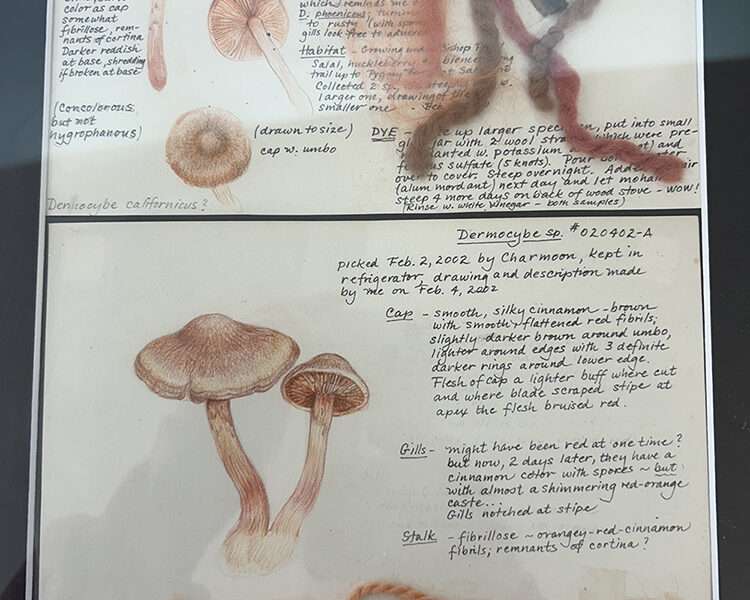 color as cap
somewhat
fibrillose, rem-
nants of cortina
Darker reddish
at base, shredding
if broken at base
(concolorous
but not
hygrophanous)
Dermocybe californicus?
(drawn to size)
cap w. umbo
which reminds me
D. phoenicus;
to rusty (with
gills look free to
Habitat - Growing
Salal, huckleberry
trail up to Pygmy
Collected 2 sp.
larger one, drawing of
smaller one -
DYE - up larger specimen, put into small
jar with 2 wool which were pre-
w. potassium and
sulfate (5 knots). Pour
over to cover. Steep overnight. Added
(alum mordant) next day and let mohair
steep 4 more days on back of wood stove - WOW!
(Rinse w. white vinegar - both samples)
Dermocybe sp. #020402-A
picked Feb. 2, 2002 by Charmoon, kept in
refrigerator, drawing and description made
by me on Feb. 4, 2002
Cap - smooth, silky cinnamon-brown
with smooth, flattened red fibrils;
slightly darker brown around umbo,
lighter around edges with 3 definite
darker rings around lower edge.
Flesh of cap a lighter buff where cut
and where blade scraped stipe at
apex the flesh bruised red.
Gills - might have been red at one time?
but now, 2 days later, they have a
cinnamon color with spores ~ but
with almost a shimmering red-orange
caste...
Gills notched at stipe
Stalk - fibrillose ~ orangey-red-cinnamon
fibrils; remnants of cortina?